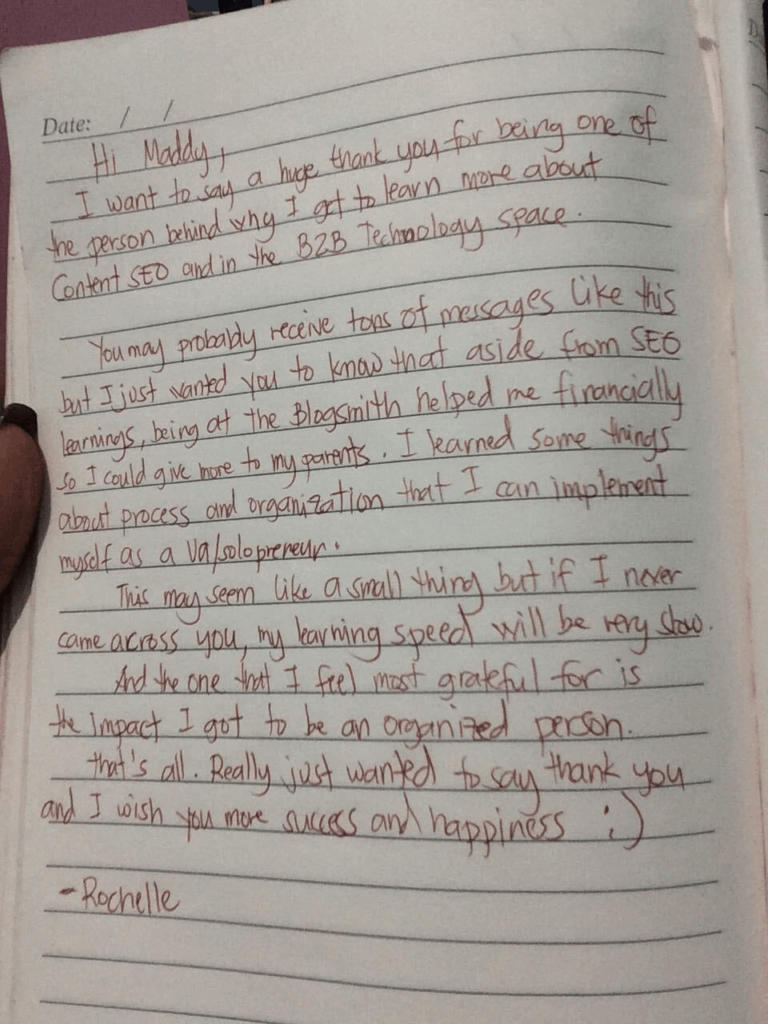 Date: / /
Hi Maddy,
I want to say a huge thank you for being one of
the person behind why I get to learn more about
Content SEO and in the B2B Technology space.
You may probably receive tons of messages like this
but I just wanted you to know that aside from SEO
learnings, being at the Blogsmith helped me financially
so I could give more to my parents. I learned some things
about process and organization that I can implement
myself as a VA/solopreneur.
This may seem like a small thing but if I never
came across you, my learning speed will be very slow.
And the one that I feel most grateful for is
the impact I got to be an organized person.
that's all. Really just wanted to say thank you
and I wish you more success and happiness :)
-Rochelle